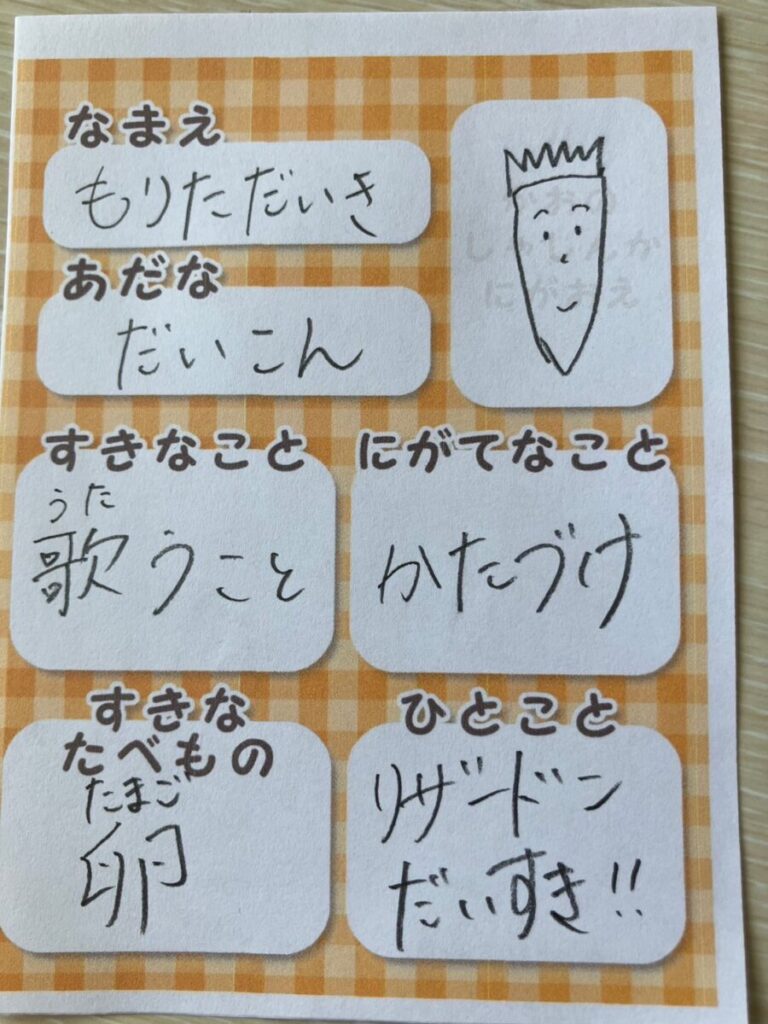 なまえ
もりただいき
あだな
だいこん
かおの
しゃしんか
にがおえ
すきなこと
うた
歌うこと
にがてなこと
かたづけ
すきな
たべもの
たまご
卵
ひとこと
リザードン
だいすき!!